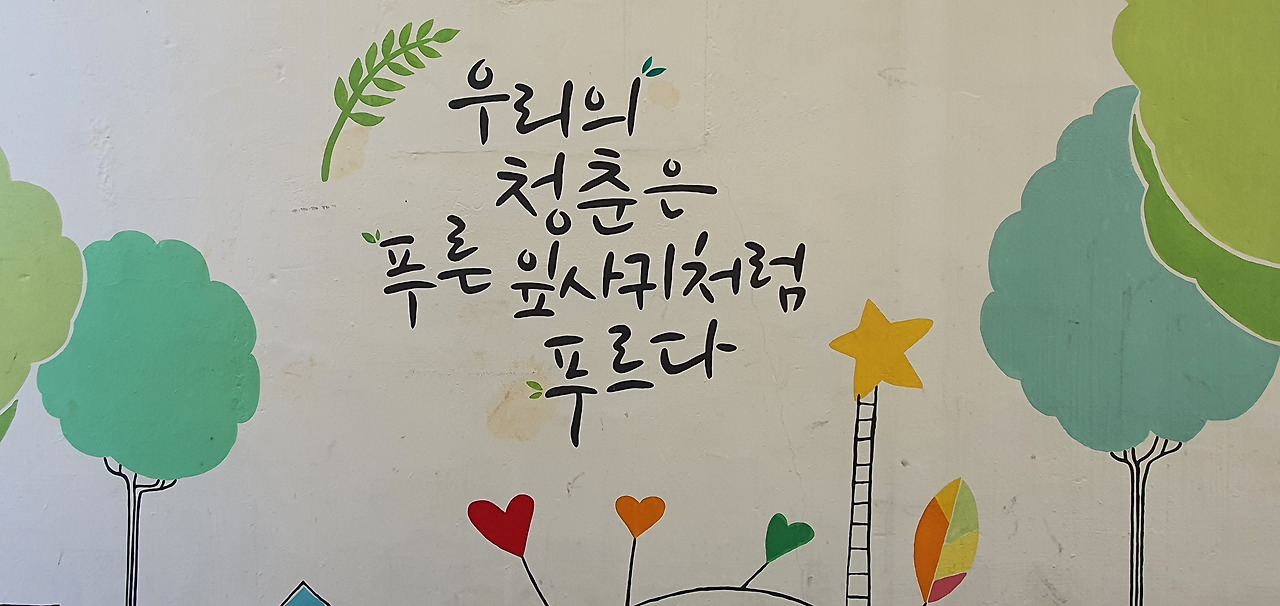 우리의
청춘은
푸른 잎사귀처럼
푸르다